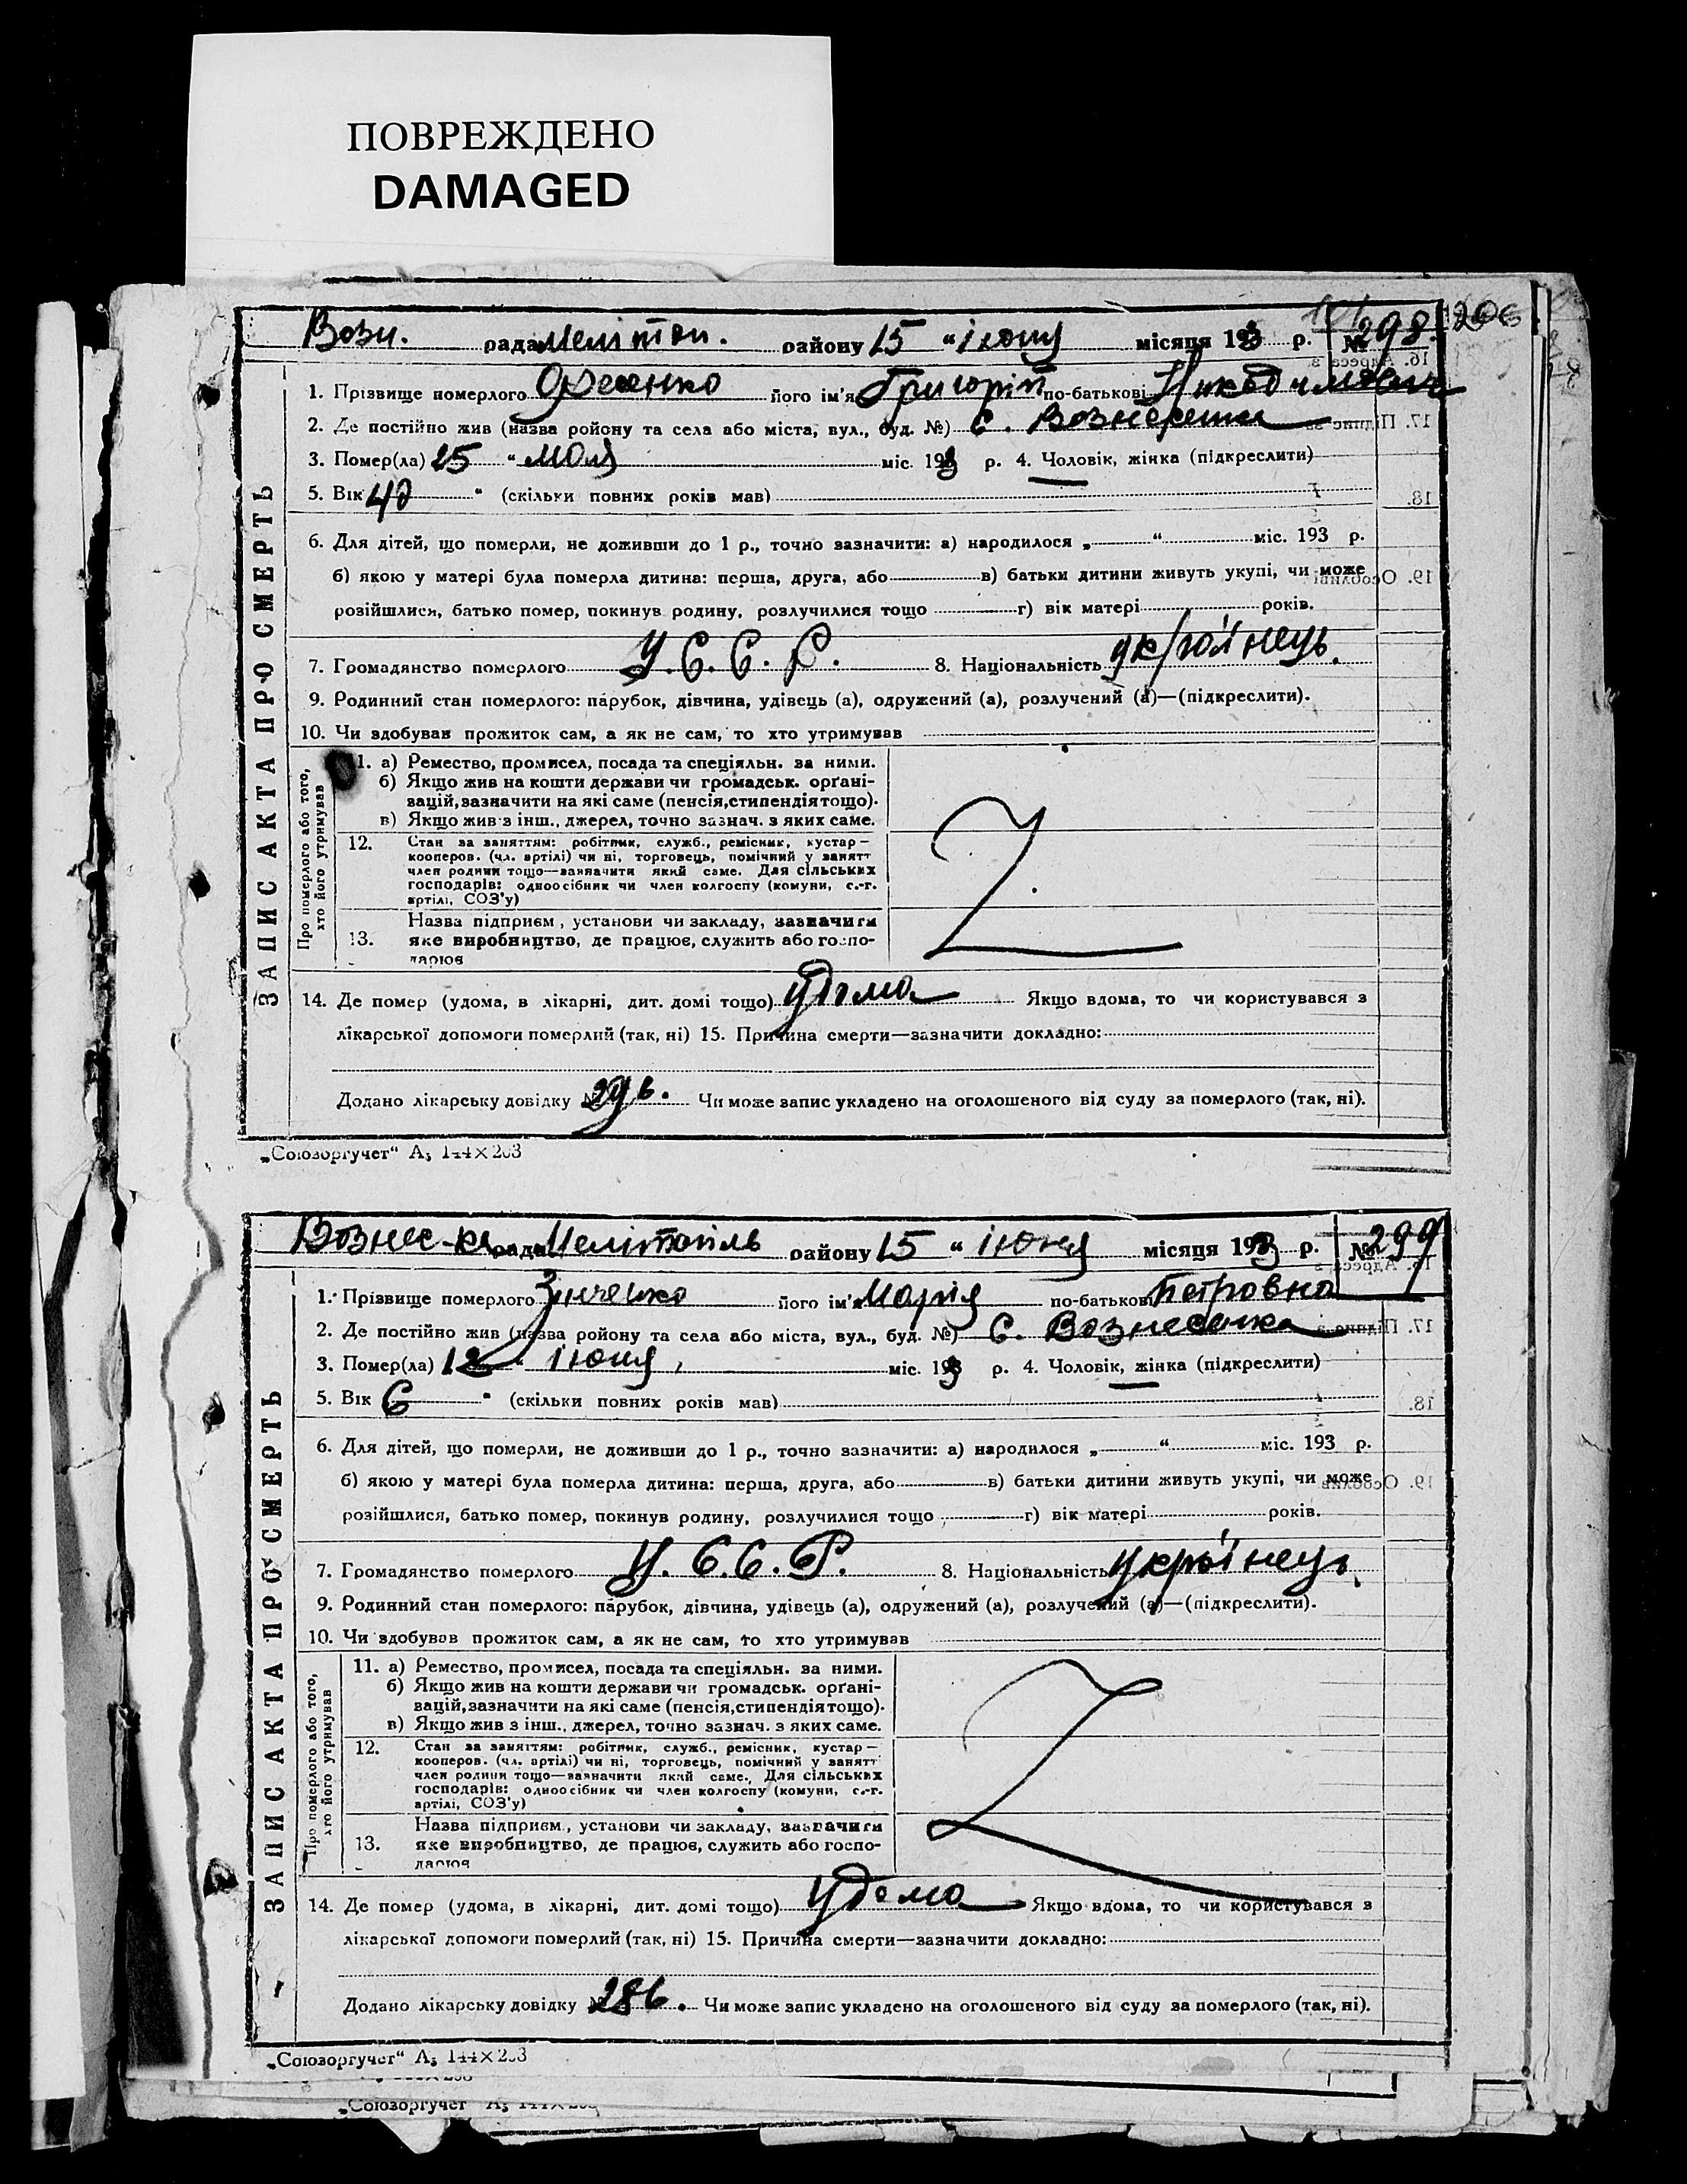 ПОВРЕЖДЕНО
DAMAGED
Возн. рада Меліто п. району 15 "іюня місяця 1933 р. № 298. 206
1. Прізвище померлого його ім'я Григорій по-батькові Никодимович
2. Де постійно жив (назва ройону та села або міста, вул., буд. №) с.
3. Помер(ла) 25 " мая міс. 1933 р. 4. Чоловік, жінка (підкреслити)
5. Вік " (скільки повних років мав)
6. Для дітей, що померли, не доживши до 1 р., точно зазначити: а) народилося „ “ міс. 193 р.
б) якою у матері була померла дитина: перша, друга, або в) батьки дитини живуть укупі, чи може
розійшлися, батько помер, покинув родину, розлучилися тощо г) вік матері років.
7. Громадянство померлого У.С.С.Р. 8. Національність україінець.
9. Родинний стан померлого: парубок, дівчина, удівець (а), одружений (а), розлучений (а)—(підкреслити).
10. Чи здобував прожиток сам, а як не сам, то хто утримував
ЗАПИС АКТА ПРО СМЕРТЬ
Про померлого або того, хто його утримував
11. а) Ремество, промисел, посада та спеціяльн. за ними.
б) Якщо жив на кошти держави чи громадськ. орґані-
зацій, зазначити на які саме (пенсія, стипендія тощо).
в) Якщо жив з інш., джерел, точно зазнач. з яких саме.
12. Стан за заняттям: робітник, служб., ремісник, кустар—
кооперов. (чл. артілі) чи ні, торговець, помічний у занятт
член родини тощо—зазначити який саме. Для сільських
господарів: одноосібник чи член колгоспу (комуни, с.-г.
артілі, СОЗ'у)
Назва підприєм., установи чи закладу, зазначити
13. яке виробництво, де працює, служить або госпо-
дарює
14. Де помер (удома, в лікарні, дит. домі тощо) удома Якщо вдома, то чи користувався з
лікарської допомоги померлий (так, ні) 15. Причина смерти—зазначити докладно:
Додано лікарську довідку № Чи може запис укладено на оголошеного від суду за померлого (так, ні).
„Союзоргучет“ А₅ 144×203
Вознес-ка рада Мелітопіль району 15 “ іюня місяця 1933 р. № 299
1. Прізвище померлого Зинченко його ім'я Марія по-батькові Петровна
2. Де постійно жив (назва ройону та села або міста, вул., буд. №) с. Вознесенка
3. Помер(ла) 12 " іюня, міс. 1933 р. 4. Чоловік, жінка (підкреслити)
5. Вік 6 " (скільки повних років мав)
6. Для дітей, що померли, не доживши до 1 р., точно зазначити: а) народилося „ “ міс. 193 р.
б) якою у матері була померла дитина: перша, друга, або в) батьки дитини живуть укупі, чи може
розійшлися, батько помер, покинув родину, розлучилися тощо г) вік матері років.
7. Громадянство померлого У.С.С.Р. 8. Національність україінець.
9. Родинний стан померлого: парубок, дівчина, удівець (а), одружений (а), розлучений (а)—(підкреслити).
10. Чи здобував прожиток сам, а як не сам, то хто утримував
ЗАПИС АКТА ПРО СМЕРТЬ
Про померлого або того, хто його утримував
11. а) Ремество, промисел, посада та спеціяльн. за ними.
б) Якщо жив на кошти держави чи громадськ. орґані-
зацій, зазначити на які саме (пенсія, стипендія тощо).
в) Якщо жив з інш., джерел, точно зазнач. з яких саме.
12. Стан за заняттям: робітник, служб., ремісник, кустар—
кооперов. (чл. артілі) чи ні, торговець, помічний у занятт
член родини тощо—зазначити який саме. Для сільських
господарів: одноосібник чи член колгоспу (комуни, с.-г.
артілі, СОЗ'у)
Назва підприєм., установи чи закладу, зазначити
13. яке виробництво, де працює, служить або госпо-
дарює
14. Де помер (удома, в лікарні, дит. домі тощо) удома Якщо вдома, то чи користувався з
лікарської допомоги померлий (так, ні) 15. Причина смерти—зазначити докладно:
Додано лікарську довідку № 286. Чи може запис укладено на оголошеного від суду за померлого (так, ні).
„Союзоргучет“ А₅ 144×203
„Союзоргучет А₅